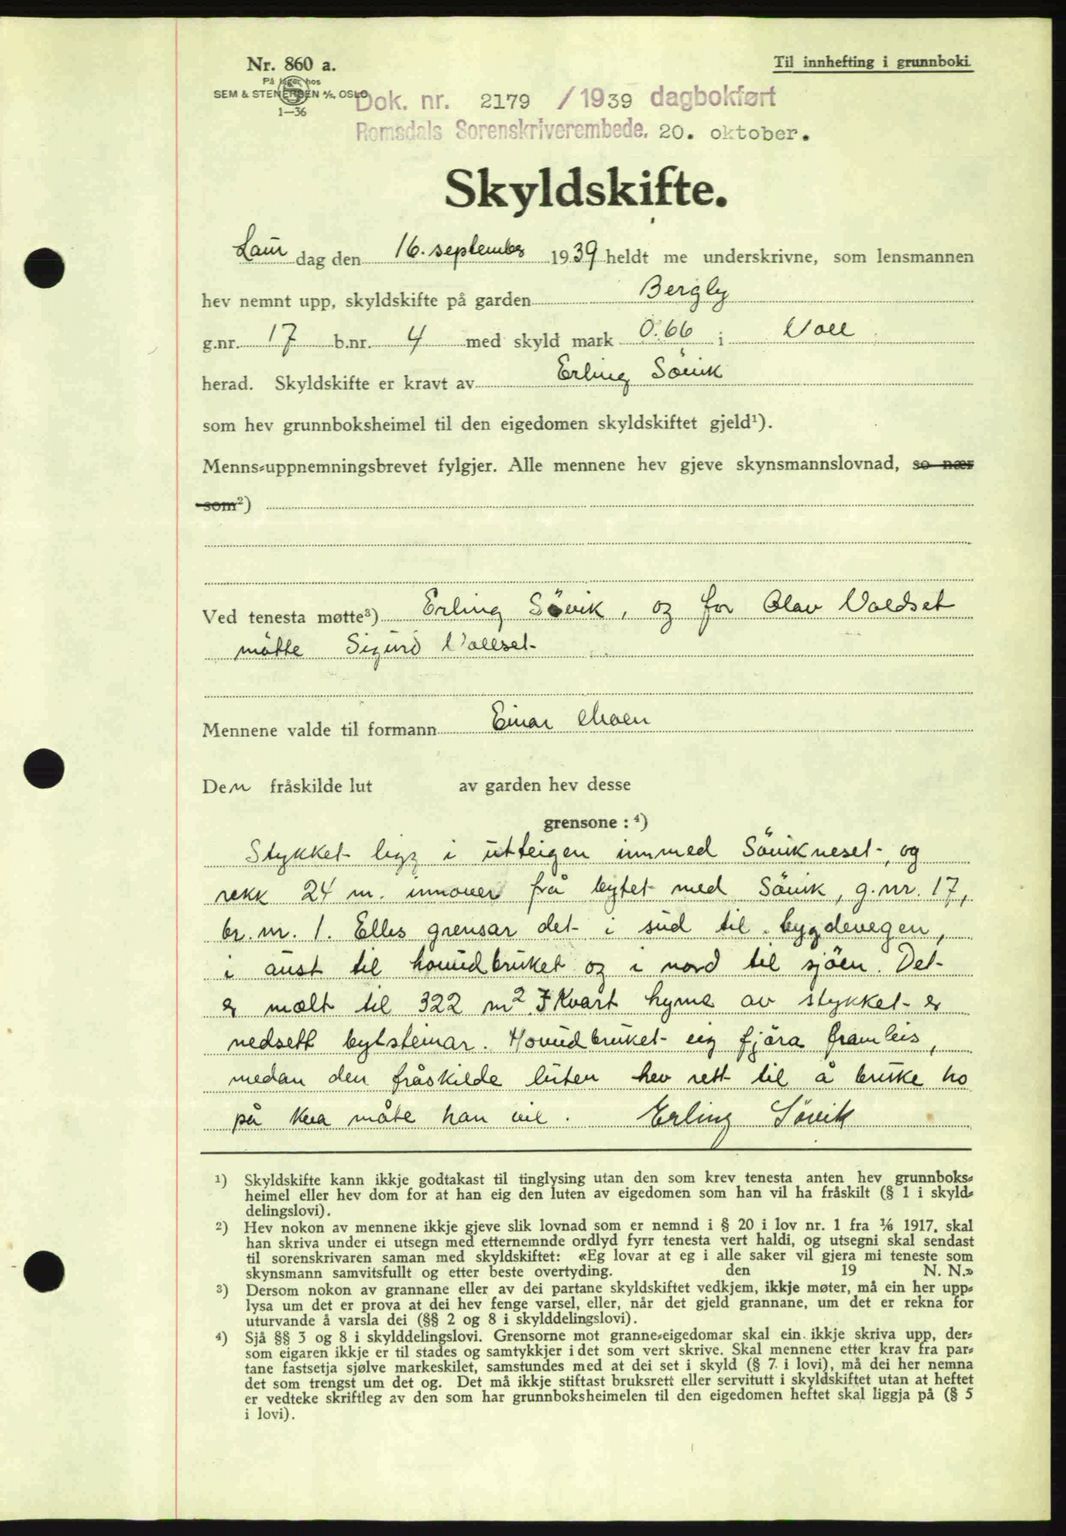 Nr. 860 a.
Til innhefting i grunnboki
På lager hos
SEM & STENERSEN A/S, OSLO
1—36
Dok. nr. 2179 / 1939 dagbokført
Romsdals Sorenskriverembede. 20. oktober.
Skyldskifte.
Laur dag den 16. september 1939 heldt me underskrivne, som lensmannen
hev nemnt upp, skyldskifte på garden Bergly
g.nr. 17 b.nr. 4 med skyld mark 0.66 i Voll
herad. Skyldskifte er kravt av Erling Sövik
som hev grunnboksheimel til den eigedomen skyldskiftet gjeld¹).
Menns-uppnemningsbrevet fylgjer. Alle mennene hev gjeve skynsmannslovnad, so nær
som²)
Ved tenesta møtte³) Erling Sövik, og for Olav Valdset
måtte Sigurd Vallset
Mennene valde til formann Einar Moen
Den fråskilde lut av garden hev desse
grensone : ⁴)
Stykket ligg i utteigen innmed Sövikneset, og
rekk 24 m. innover frå bytet med Sövik, g.nr. 17,
br. nr. 1. Elles grensar det i sud til bygdevegen,
i aust til hovudbruket og i nord til sjöen. Det
er mælt til 322 m². I kvart hyrne av stykket er
nedsett bytsteinar. Hovudbruket eig fjöra framleis,
medan den fråskilde luten hev rett til å bruke ho
på kva måte han vil. Erling Søvik
¹) Skyldskifte kann ikkje godtakast til tinglysing utan den som krev tenesta anten hev grunnboks-
heimel eller hev dom for at han eig den luten av eigedomen som han vil ha fråskilt (§ 1 i skyld-
delingslovi).
²) Hev nokon av mennene ikkje gjeve slik lovnad som er nemnd i § 20 i lov nr. 1 fra ⅟₆ 1917, skal
han skriva under ei utsegn med etternemnde ordlyd fyrr tenesta vert haldi, og utsegni skal sendast
til sorenskrivaren saman med skyldskiftet: «Eg lovar at eg i alle saker vil gjera mi teneste som
skynsmann samvitsfullt og etter beste overtyding. den 19 N. N.»
³) Dersom nokon av grannane eller av dei partane skyldskiftet vedkjem, ikkje møter, må ein her upp-
lysa um det er prova at dei hev fenge varsel, eller, når det gjeld grannane, um det er rekna for
uturvande å varsla dei (§§ 2 og 8 i skylddelingslovi).
⁴) Sjå §§ 3 og 8 i skylddelingslovi. Grensorne mot granne-eigedomar skal ein ikkje skriva upp, der-
som eigaren ikkje er til stades og samtykkjer i det som vert skrive. Skal mennene etter krav fra par-
tane fastsetja sjølve markeskilet, samstundes med at dei set i skyld (§ 7 i lovi), må dei her nemna
det som trengst um det og. Det må ikkje stiftast bruksrett eller servitutt i skyldskiftet utan at heftet
er vedteke skriftleg av den som har grunnboksheimelen til den eigedomen heftet skal liggja på (§ 5
i lovi).